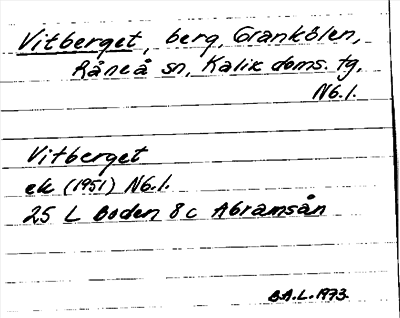 Vitberget, berg, Grankölen,
Råneå sn, Kalix doms. tg,
Nb.l.
Vitberget
ek (1951) Nb.l.
25 L Boden 8c Abramsån
B.A.L. 1973.